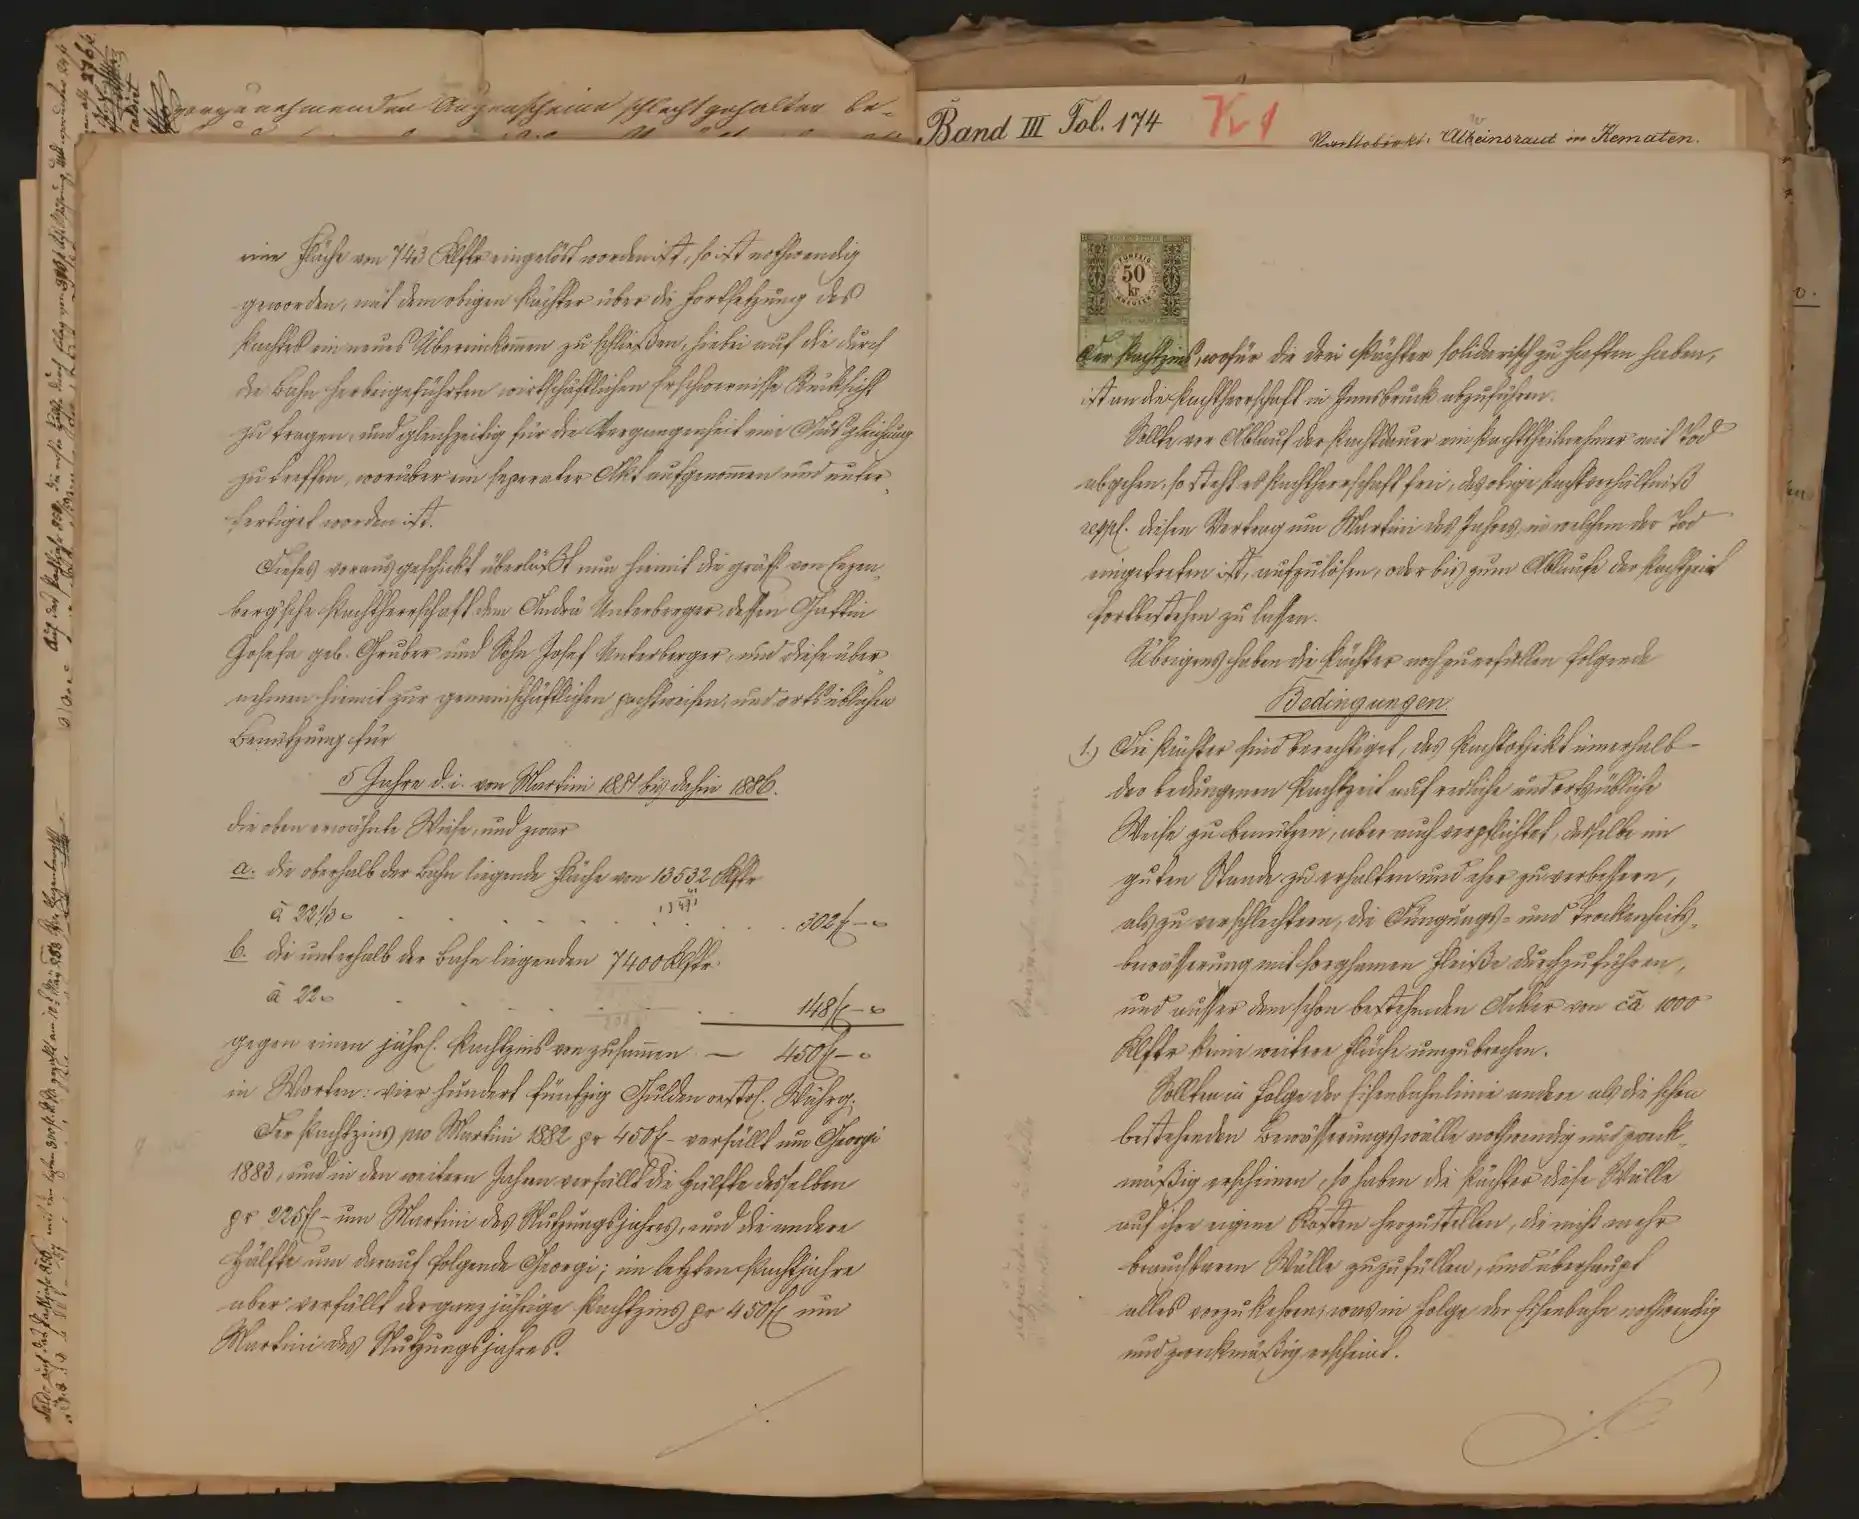 vorzunehmenden Augenscheine schlecht gehalten be-
eine Fläche von 743 Klftr eingelöst worden ist, so ist nothwendig
geworden, mit dem obigen Pächter über die Fortsetzung des
Pachtes ein neues Übereinkommen zu schließen, hiebei auf die durch
die Bahn herbeigeführten wirthschäftlichen Erschwernisse Rücksicht
zu tragen, und gleichzeitig für die Vergangenheit eine Ausgleichung
zu treffen, worüber ein seperater Akt aufgenommen und unter-
fertiget worden ist.
Dieses vorausgeschickt überläßt nun hiemit die gräfl. von Enzen-
berg'sche Pachtherrschaft dem Andrä Unterberger, dessen Gattin
Josefa geb. Gruber und Sohn Josef Unterberger, und diese über-
nehmen hiemit zur gemeinschäftlichen pachtweisen, und ortsüblichen
Benützung für
5 Jahre d. i. von Martini 1881 bis dahin 1886.
die oben erwähnte Wiese, und zwar
a. die oberhalb der Bahn liegende Fläche von 13532 Klftr
à 22 1/3 . . . . . . 302 f – "
b. die unterhalb der Bahn liegenden 7400 Klftr.
à 20 . . . . . . 148 f – "
gegen einen jährl. Pachtzins von zusammen — 450 f – "
in Worten: vier hundert fünfzig Gulden oestr. Währg.
Der Pachtzins pro Martini 1882 pr 450 f – verfällt um Georgi
1883, und in den weitern Jahren verfällt die Hälfte desselben
pr 225 f – um Martini des Nutzungsjahres, und die andere
Hälfte um darauf folgende Georgi; im letzten Pachtjahre
aber verfällt der ganzjährige Pachtzins pr 450 f um
Martini des Nutzungsjahres.
Band III Fol. 174 K 1
in Kematen.
FÜNFZIG
50
kr
KREUZER
Der Pachtzins, wofür die drei Pächter solidarisch zu haften haben,
ist an die Pachtherrschaft in Innsbruck abzuführen.
Sollte vor Ablauf der Pachtdauer ein Pachttheilnehmer mit Tod
abgehen, so steht es Pachtherrschaft frei, das obige Pachtverhältniß
respl. diesen Vertrag um Martini des Jahres, in welchem der Tod
eingetreten ist, aufzulösen, oder bis zum Ablaufe der Pachtzeit
fortbestehen zu lassen.
Übrigens haben die Pächter noch zu erfüllen folgende
Bedingungen.
1.) Die Pächter sind berechtiget, das Pachtobjekt innerhalb
der bedungenen Pachtzeit auf redliche und ortsübliche
Weise zu benützen, aber auch verpflichtet, dasselbe im
guten Stande zu erhalten und eher zu verbessern,
als zu verschlechtern, die Düngungs- und Trockenheits-
bewässerung mit sorgsamen Fleiße durchzuführen,
und ausser dem schon bestehenden Acker von ca 1000
Klftr keine weitere Fläche umzubrechen.
Sollten in Folge der Eisenbahnlinie andere als die schon
bestehenden Bewässerungswälle nothwendig und zweck-
mäßig erscheinen, so haben die Pächter diese Wälle
auf ihre eigene Kosten herzustellen, die nicht mehr
brauchbaren Wälle zuzufüllen, und überhaupt
alles vorzukehren, was in Folge der Eisenbahn nothwendig
und zweckmäßig erscheint.